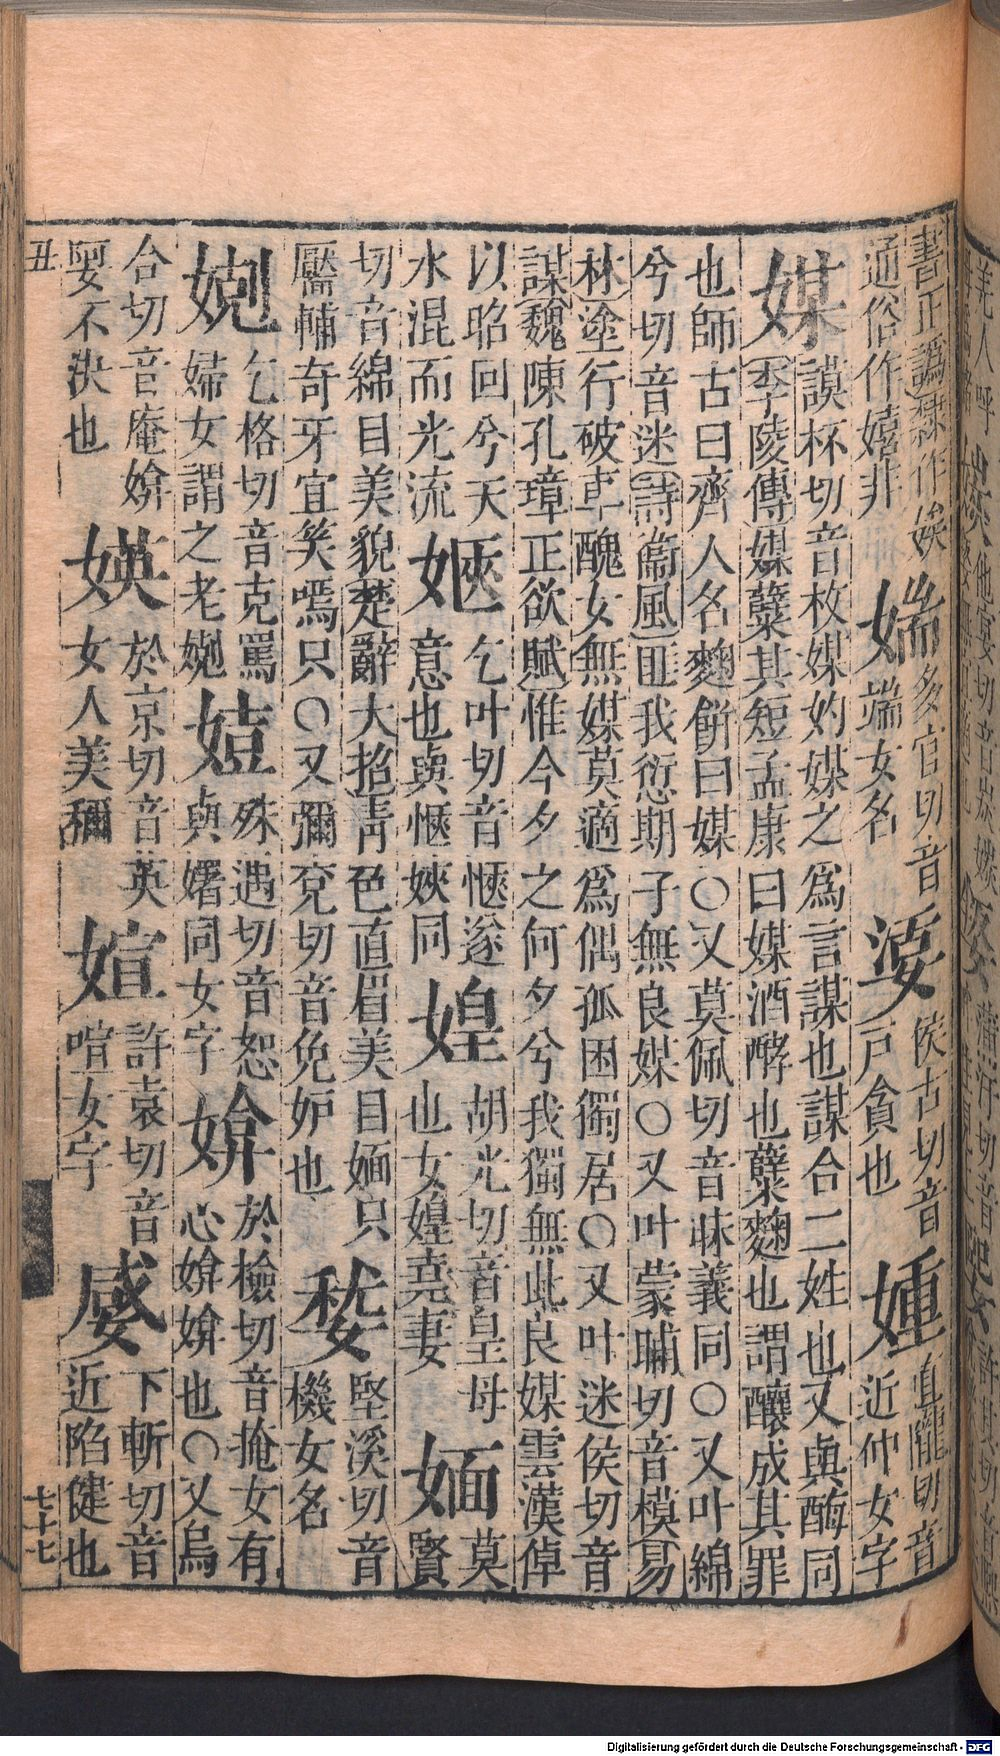 書正譌𥡴作娭
通俗作嬉非
媏
多官切音
端女名
婟
侯古切音
戸貪也
媑
直隴切音
近仲女字
媒
謨杯切音枚媒妁媒之爲言謀也謀合二姓也又與酶同
李陵傳媒糱其短孟康曰媒酒酵也糱麴也謂釀成其罪
也師古曰齊人名麴餅曰媒〇又莫佩切音昧義同〇又叶綿
兮切音迷詩衞風匪我愆期子無良媒〇又叶蒙晡切音模易
林塗行破車醜女無媒莫適爲偶孤困獨居〇又叶迷侯切音
謀魏陳孔璋正欲賦惟今夕之何夕兮我獨無此良媒雲漢倬
以昭回兮天
水混而光流
㛍
乞叶切音愜遂
意也與愜㛍同
媓
胡光切音皇母
也女媓堯妻
媔
莫賢
切音綿目美貌楚辭大招靑色直眉美目媔只
靨輔奇牙宜笑嘕只〇又彌兗切音免妒也
嵇
堅溪切音
機女名
㛳
乞格切音克罵
婦女謂之老㛳
𡠉
殊遇切音恕
與𡠉同女字
媕
於檢切音掩女有
心媕媕也〇又烏
合切音庵媕
娿不決也
媖
於京切音英
女人美稱
媗
許袁切音
喧女字
媙
下斬切音
近陷健也
丑
七十七
Digitalisierung gefördert durch die Deutsche Forschungsgemeinschaft - DFG